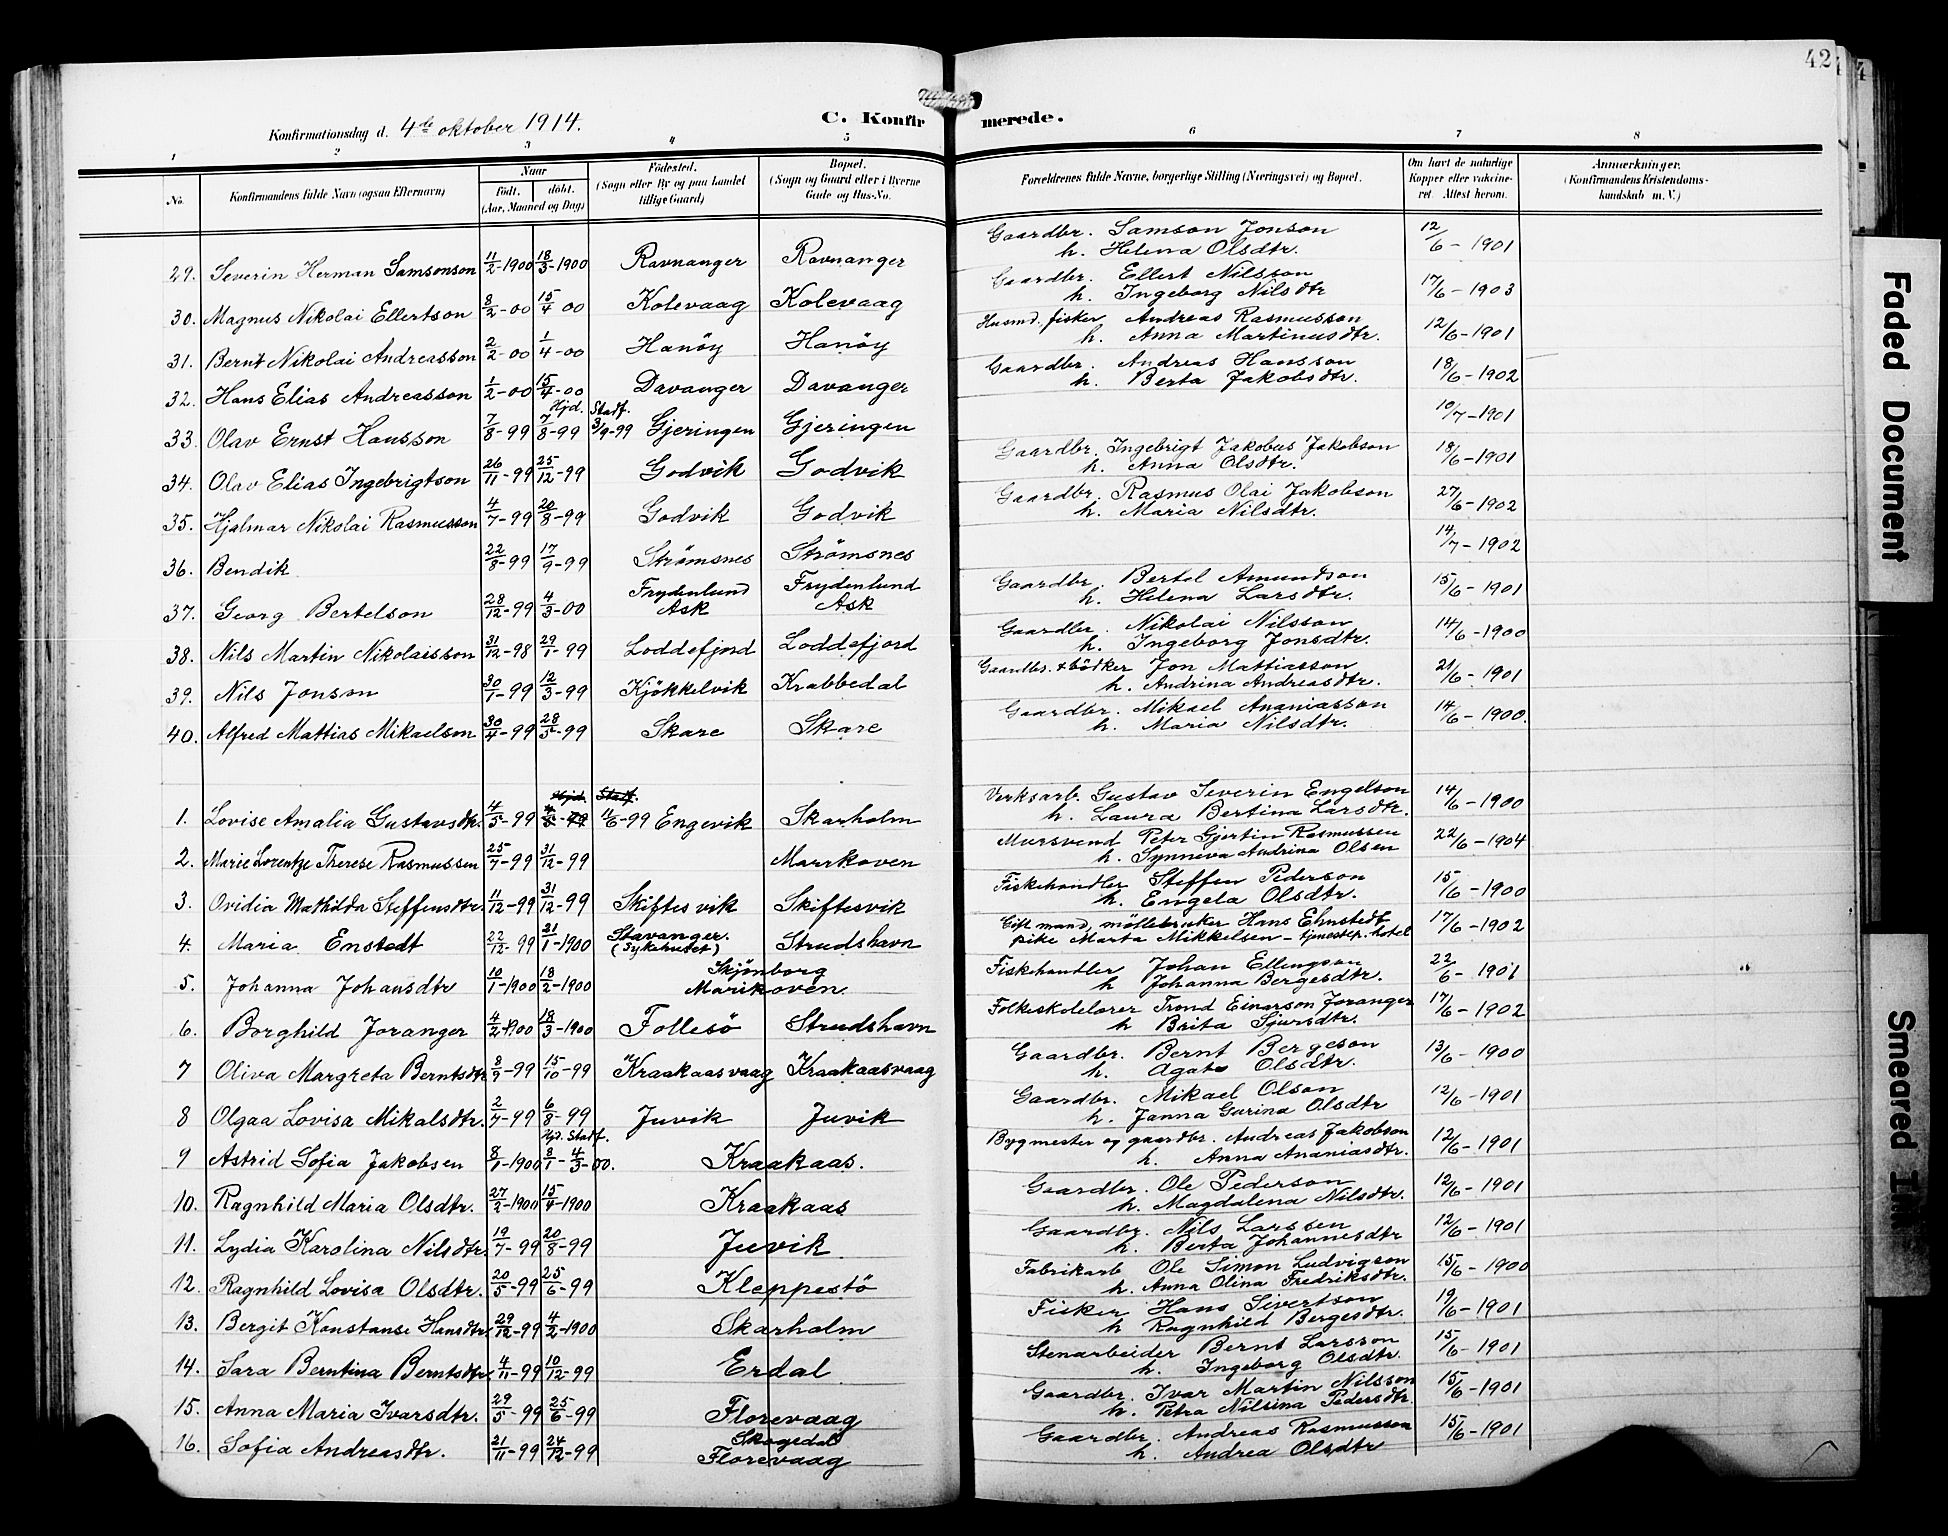 42
Konfirmationsdag d. 4de oktober 1914.
C. Konfirmerede.
1 2 3 4 5 6 7 8
No. Konfirmandens fulde Navn (ogsaa Efternavn) Naar født. døbt. (Aar, Maaned og Dag) Fødested. (Sogn eller By og paa Landet tillige Gaard) Bopæl. (Sogn og Gaard eller i Byerne Gade og Hus-No. Forældrenes fulde Navne, borgerlige Stilling (Næringsvei) og Bopæl. Om havt de naturlige Kopper eller vaccineret. Attest herom. Anmærkninger. (Konfirmandens Kristendomskundskab m. V.)
29. Severin Herman Samsonson 11/2-1900 18/3-1900 Ravnanger Ravnanger Gaardbr. Samson Jonson h. Helena Olsdtr. 12/6-1901
30. Magnus Nikolai Ellertson 8/2-00 15/4 00 Kolevaag Kolevaag Gaardbr. Ellert Nilsson h. Ingeborg Nilsdtr 17/6-1903
31. Bernt Nikolai Andreasson 2/2-00 1/4-00 Hanöy Hanöy Husmd. fisker Andreas Rasmusson h. Anna Martinusdtr. 12/6-1901
32. Hans Elias Andreasson 1/2-00 15/4-00 Davanger Davanger Gaardbr. Andreas Hansson h. Berta Jakobsdtr. 18/6-1902
33. Olav Ernst Hansson 7/8-99 Hjd. 7/8-99 Stadf. 3/9-99 Gjeringen Gjeringen 10/7-1901
34. Olav Elias Ingebrigtson 26/11-99 25/12-99 Godvik Godvik Gaardbr. Ingebrigt Jakobus Jakobson h. Anna Olsdtr. 18/6-1901
35. Hjalmar Nikolai Rasmusson 4/7-99 20/8-99 Godvik Godvik Gaardbr. Rasmus Olai Jakobson h. Maria Nilsdtr. 27/6-1902
36. Bendik 22/8-99 17/9-99 Strømsnes Strømsnes 14/7-1902
37. Georg Bertelson 28/12-99 4/3-00 Frydenlund Ask Frydenlund Ask Gaardbr. Bertel Amundson h. Helena Larsdtr. 15/6-1901
38. Nils Martin Nikolaisson 31/12-98 29/1-99 Loddefjord Loddefjord Gaardbr. Nikolai Nilsson h. Ingeborg Jonsdtr. 14/6-1900
39. Nils Jonson 30/1-99 12/3-99 Kjökkelvik Krabbedal Gaardbr. + bödker Jon Mattiasson h. Andrina Andreasdtr. 21/6-1901
40. Alfred Mattias Mikaelson 30/4-99 28/5-99 Skare Skare Gaardbr. Mikael Ananiasson h. Maria Nilsdtr. 14/6-1900.
1. Lovise Amalia Gustavsdtr. 4/5-99 Hjd. Stadf. 11/6-99 Engevik Skarholm Verksarb. Gustav Severin Engelson h. Laura Bertina Larsdtr. 14/6-1900
2. Marie Lorentze Therese Rasmussen 25/7-99 31/12-99 Marrkoven Mursvend Peter Gjertin Rasmussen h. Synneva Andrina Olsen 22/6-1904
3. Ovidia Mathilda Steffensdtr. 11/12-99 31/12-99 Skiftesvik Skiftesvik Fiskehandler Steffen Pederson h. Engela Olsdtr. 15/6-1900
4. Maria Enstedt 22/12-99 21/1-1900 Stavanger. (Sykehuset) Strudshavn Gift mand, möllebruker Hans Ehnstedt pike Marta Mikkelsen - tjenestep. hotel 17/6-1902
5. Johanna Johansdtr 10/1-1900 18/2-1900 Skjönborg Marikoven. Fiskehandler Johan Ellingson h Johanna Bergesdtr. 22/6-1901
6. Borghild Joranger 4/2-1900 18/3-1900 Follesö Strudshavn Folkeskolelærer Trond Einarson Joranger h Brita Sjursdtr. 17/6-1902
7 Oliva Margreta Berntsdtr 8/9-99 15/10-99 Kraakaasvaag Kraakaasvaag Gaardbr. Bernt Bergeson h. Agate Olsdtr. 13/6-1900
8 Olgaa Lovisa Mikalsdtr. 2/7-99 6/8-99 Juvik Juvik Gaardbr. Mikael Olson h. Janna Gurina Olsdtr 12/6-1901
9 Astrid Sofia Jakobsen 8/1-1900 Hjd. Stadf. 8/1- 4/3-00. Kraakaas. Bygmester og gaardbr. Andreas Jakobson h. Anna Ananiasdtr. 12/6-1901
10. Ragnhild Maria Olsdtr. 27/2-1900 15/4-1900 Kraakaas Gaardbr. Ole Pederson h. Magdalena Nilsdtr. 12/6-1901
11. Lydia Karolina Nilsdtr. 19/7-99 20/8-99 Juvik Gaardbr. Nils Larssen h. Berta Johannesdtr 12/6-1901
12. Ragnhild Lovisa Olsdtr. 20/5-99 25/6-99 Kleppestö Fabrikarb Ole Simon Ludvigson h. Anna Olina Fredriksdtr. 15/6-1900
13. Bergit Konstanse Hansdtr. 29/12-99 4/2-1900 Skarholm Fisker Hans Sivertson h Ragnhild Bergesdtr. 19/6-1901
14. Sara Berntina Berntsdtr. 4/11-99 10/12-99 Erdal Stenarbeider Bernt Larsson h. Ingeborg Olsdtr. 15/6-1901
15. Anna Maria Ivarsdtr. 29/5-99 25/6-99 Florevaag Gaardbr. Ivar Martin Nilsson h. Petra Nilsina Pedersdtr. 15/6-1901
16. Sofia Andreasdtr. 21/11-99 24/12-99 Skogedal Florevaag Gaardbr. Andreas Rasmusson h. Andrea Olsdtr 15/6-1901
Faded Document
Smeared Ink